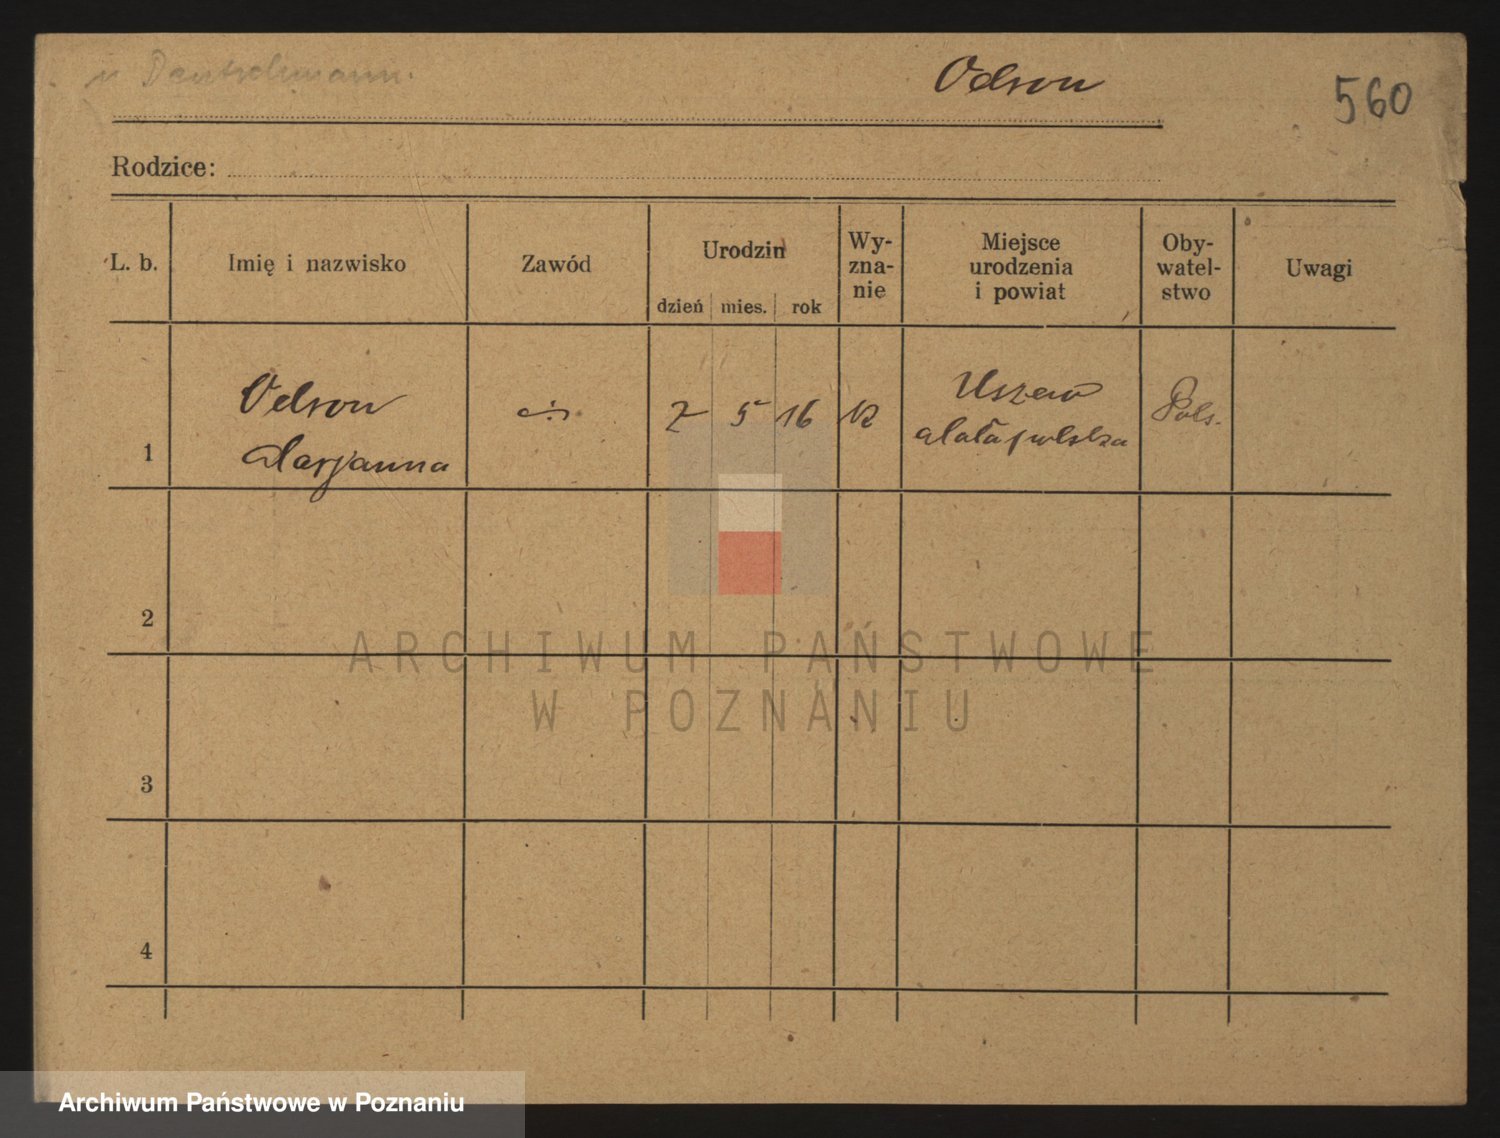 u Deutschmann.
Odson
560
Rodzice:
L. b. Imię i nazwisko Zawód Urodzin dzień mies. rok Wy-zna-nie Miejsce urodzenia i powiat Oby-watel-stwo Uwagi
1 Odson Marjanna 2 5 16 K Uszew Małopolska Pols.
2
3
4
ARCHIWUM PAŃSTWOWE
W POZNANIU
Archiwum Państwowe w Poznaniu